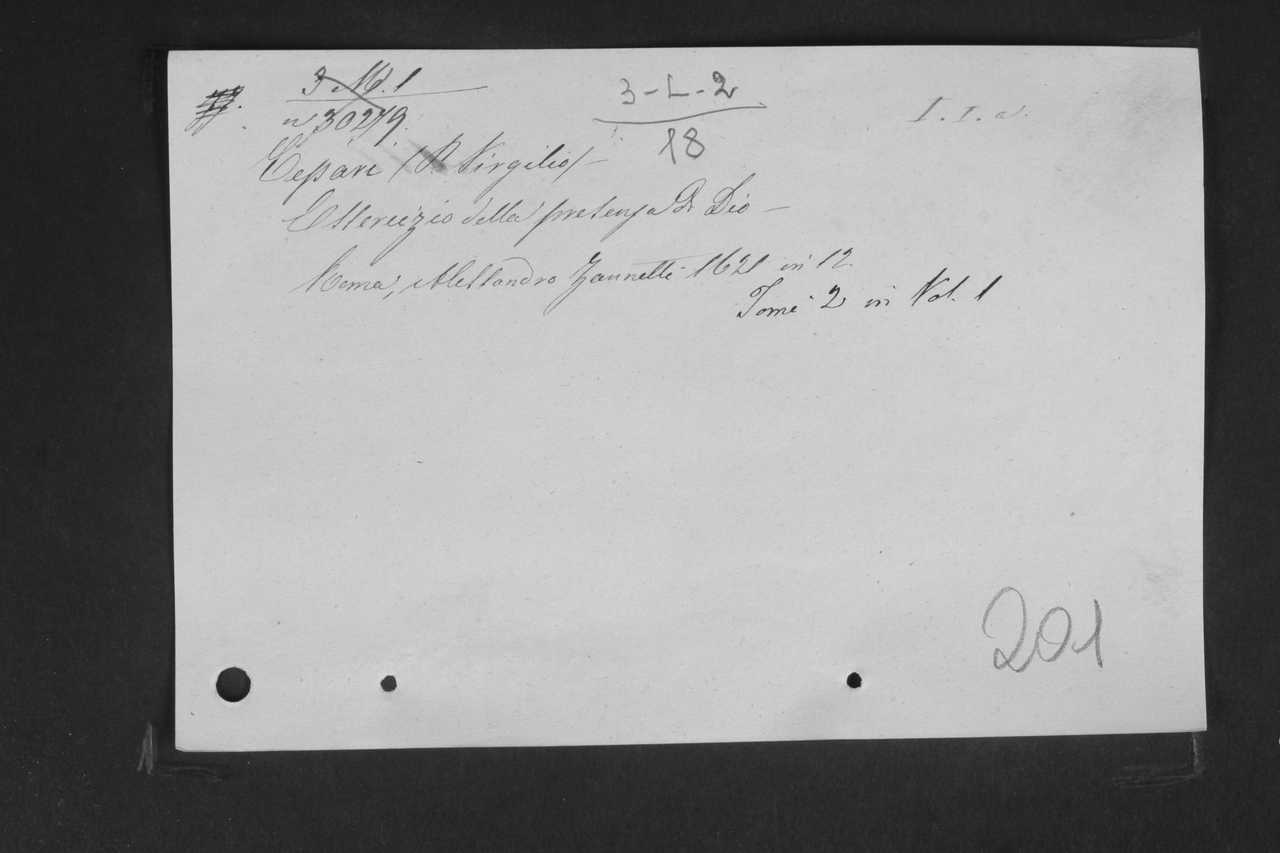 3-M.1
n 30279.
3-L-2
18
I. I. a.
Cepari (P. Virgilio) –
Essercizio della presenza di Dio –
Roma, Alessandro Zannetti 1621 in 12.
Tomi 2 in Vol. 1
201